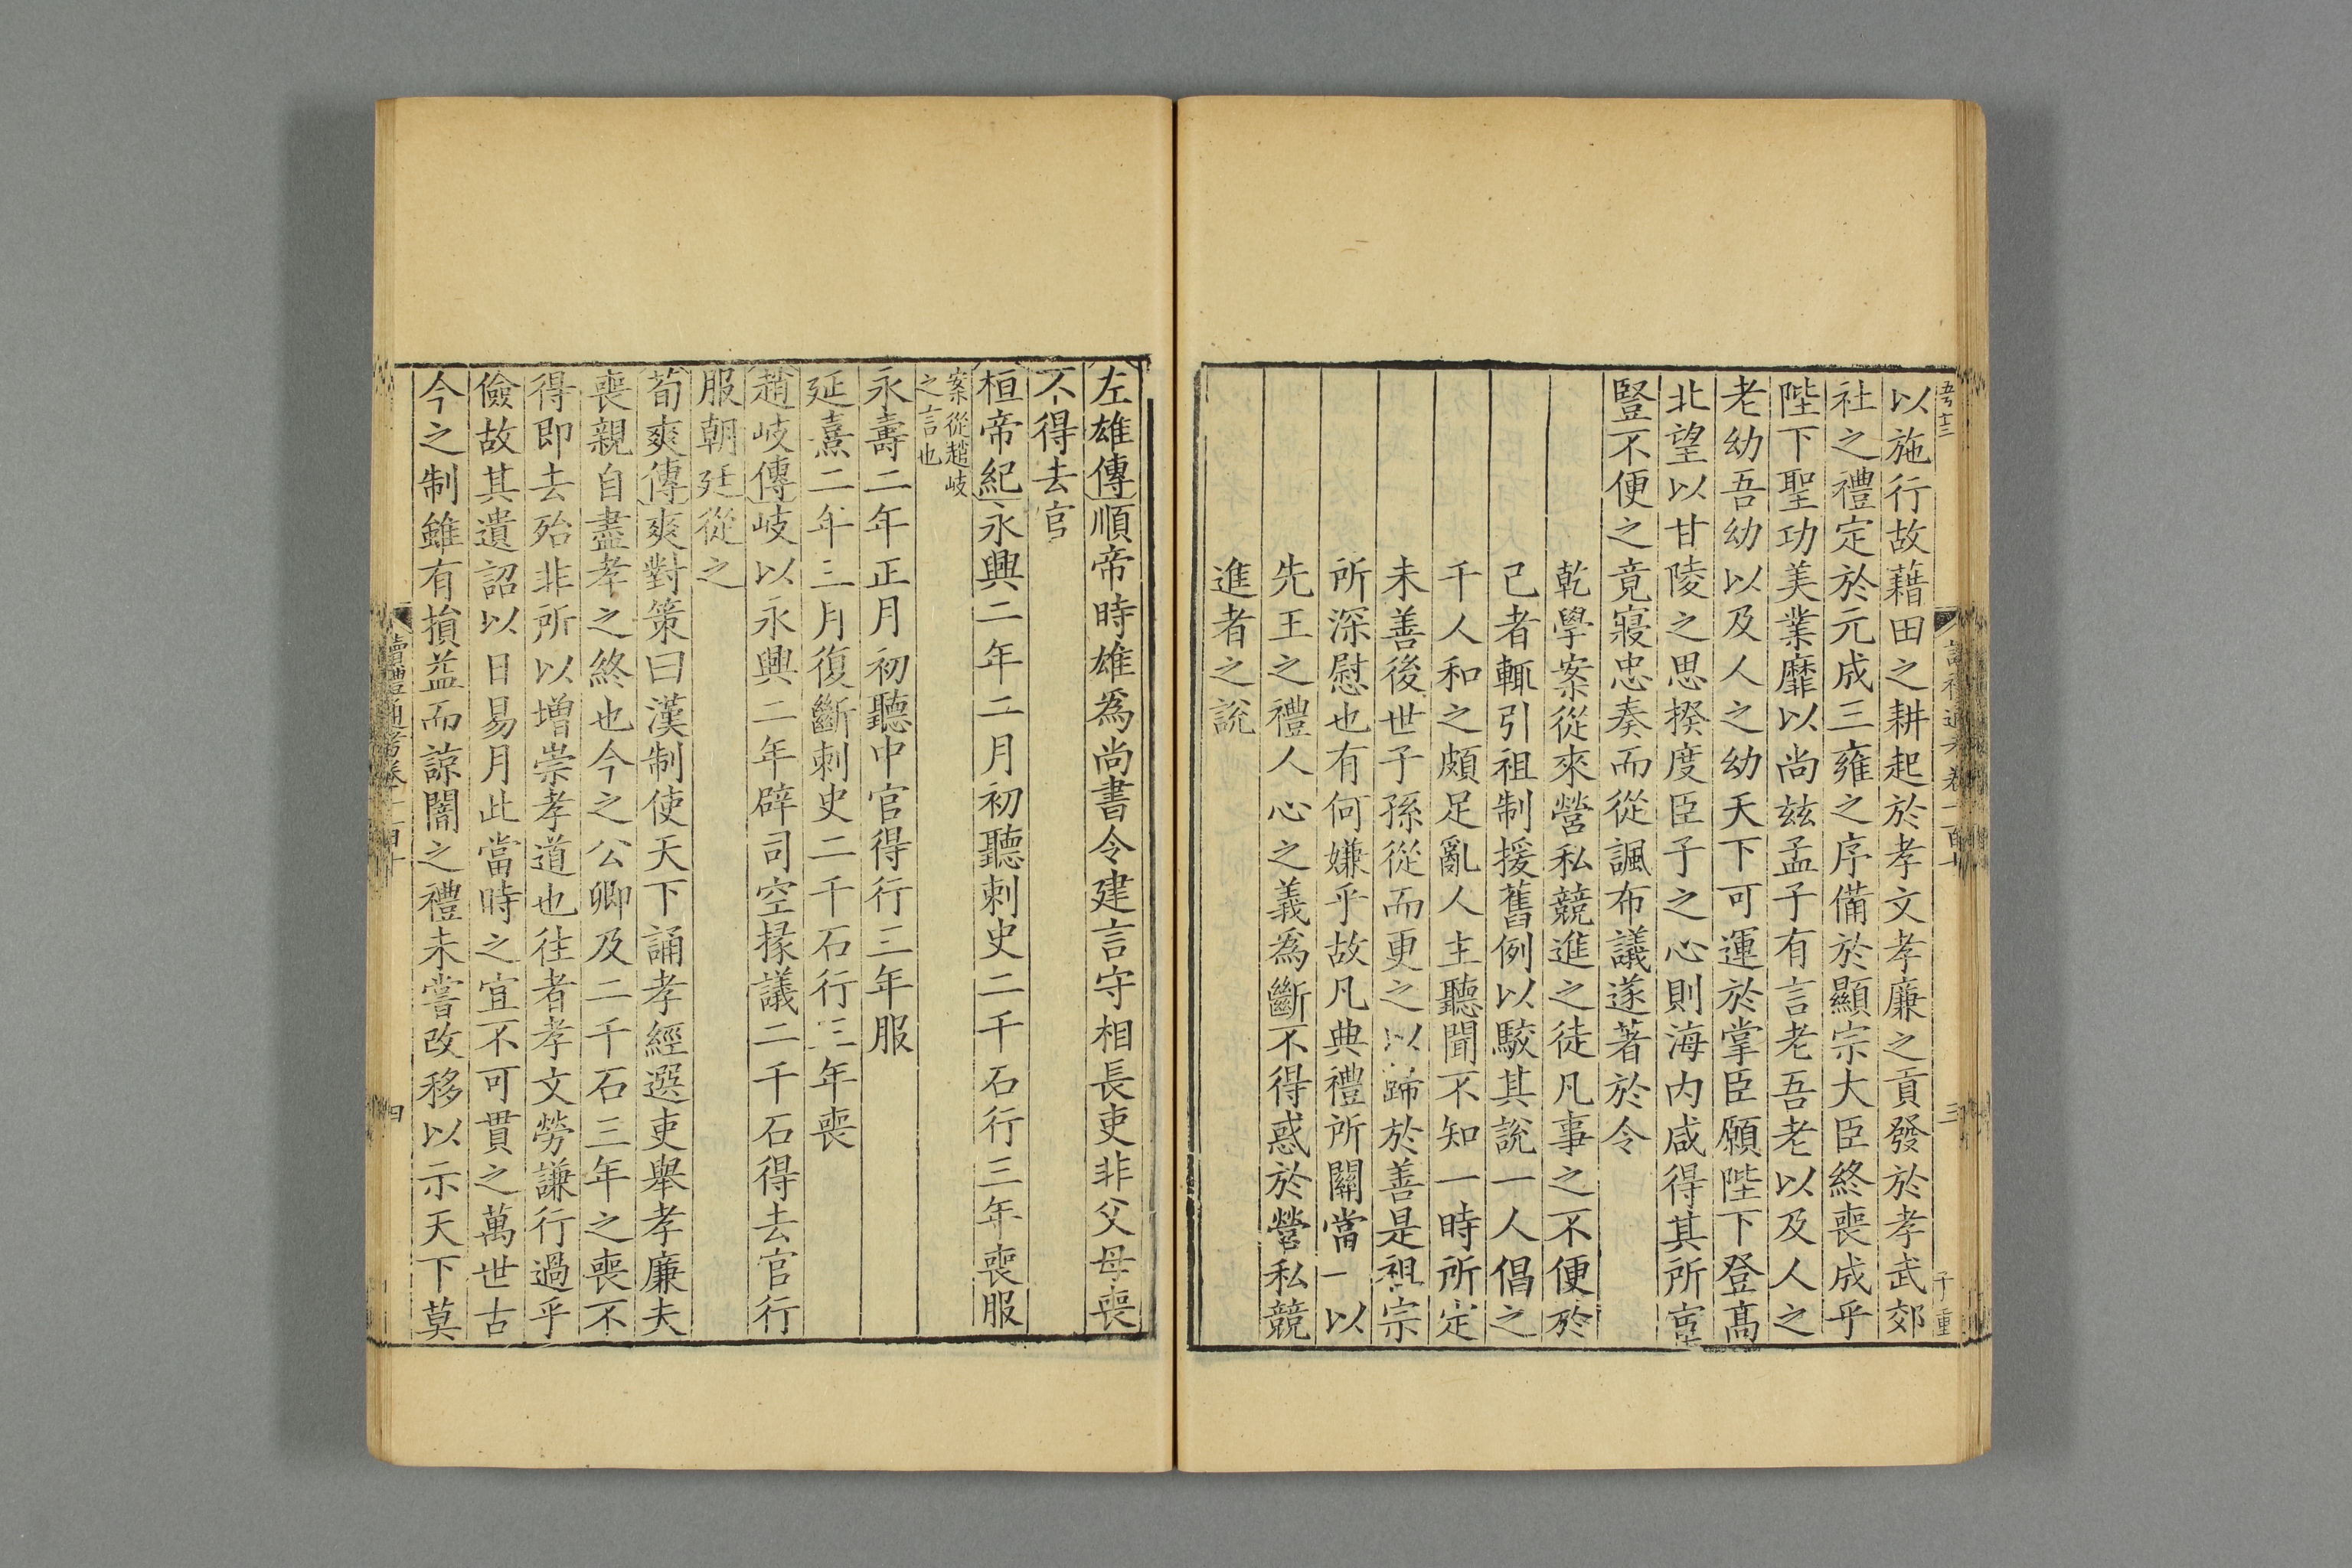 以施行故藉田之耕起於孝文孝廉之貢發於孝武郊
社之禮定於元成三雍之序備於顯宗大臣終喪成乎
陛下聖功美業靡以尚玆孟子有言老吾老以及人之
老幼吾幼以及人之幼天下可運於掌臣願陛下登髙
北望以甘陵之思揆度臣子之心則海内咸得其所宦
豎不便之竟寢忠奏而從諷布議遂著於令
乾學案從來營私競進之徒凡事之不便於
己者輒引祖制援舊例以駮其說一人倡之
千人和之頗足亂人主聽聞不知一時所定
未善後世子孫從而更之以歸於善是祖宗
所深慰也有何嫌乎故凡典禮所關當一以
先王之禮人心之義為斷不得惑於營私競
進者之說
左雄傳順帝時雄為尚書令建言守相長吏非父母喪
不得去官
桓帝紀永興二年二月初聽刺史二千石行三年喪服
案從趙岐
之言也
永壽二年正月初聽中官得行三年服
延熹二年三月復斷刺史二千石行三年喪
趙岐傳岐以永興二年辟司空掾議二千石得去官行
服朝廷從之
荀爽傳爽對策曰漢制使天下誦孝經選吏舉孝廉夫
喪親自盡孝之終也今之公卿及二千石三年之喪不
得即去殆非所以增崇孝道也往者孝文勞謙行過乎
儉故其遺詔以日易月此當時之宜不可貫之萬世古
今之制雖有損益而諒闇之禮未嘗改移以示天下莫
讀禮通考卷一百十
四